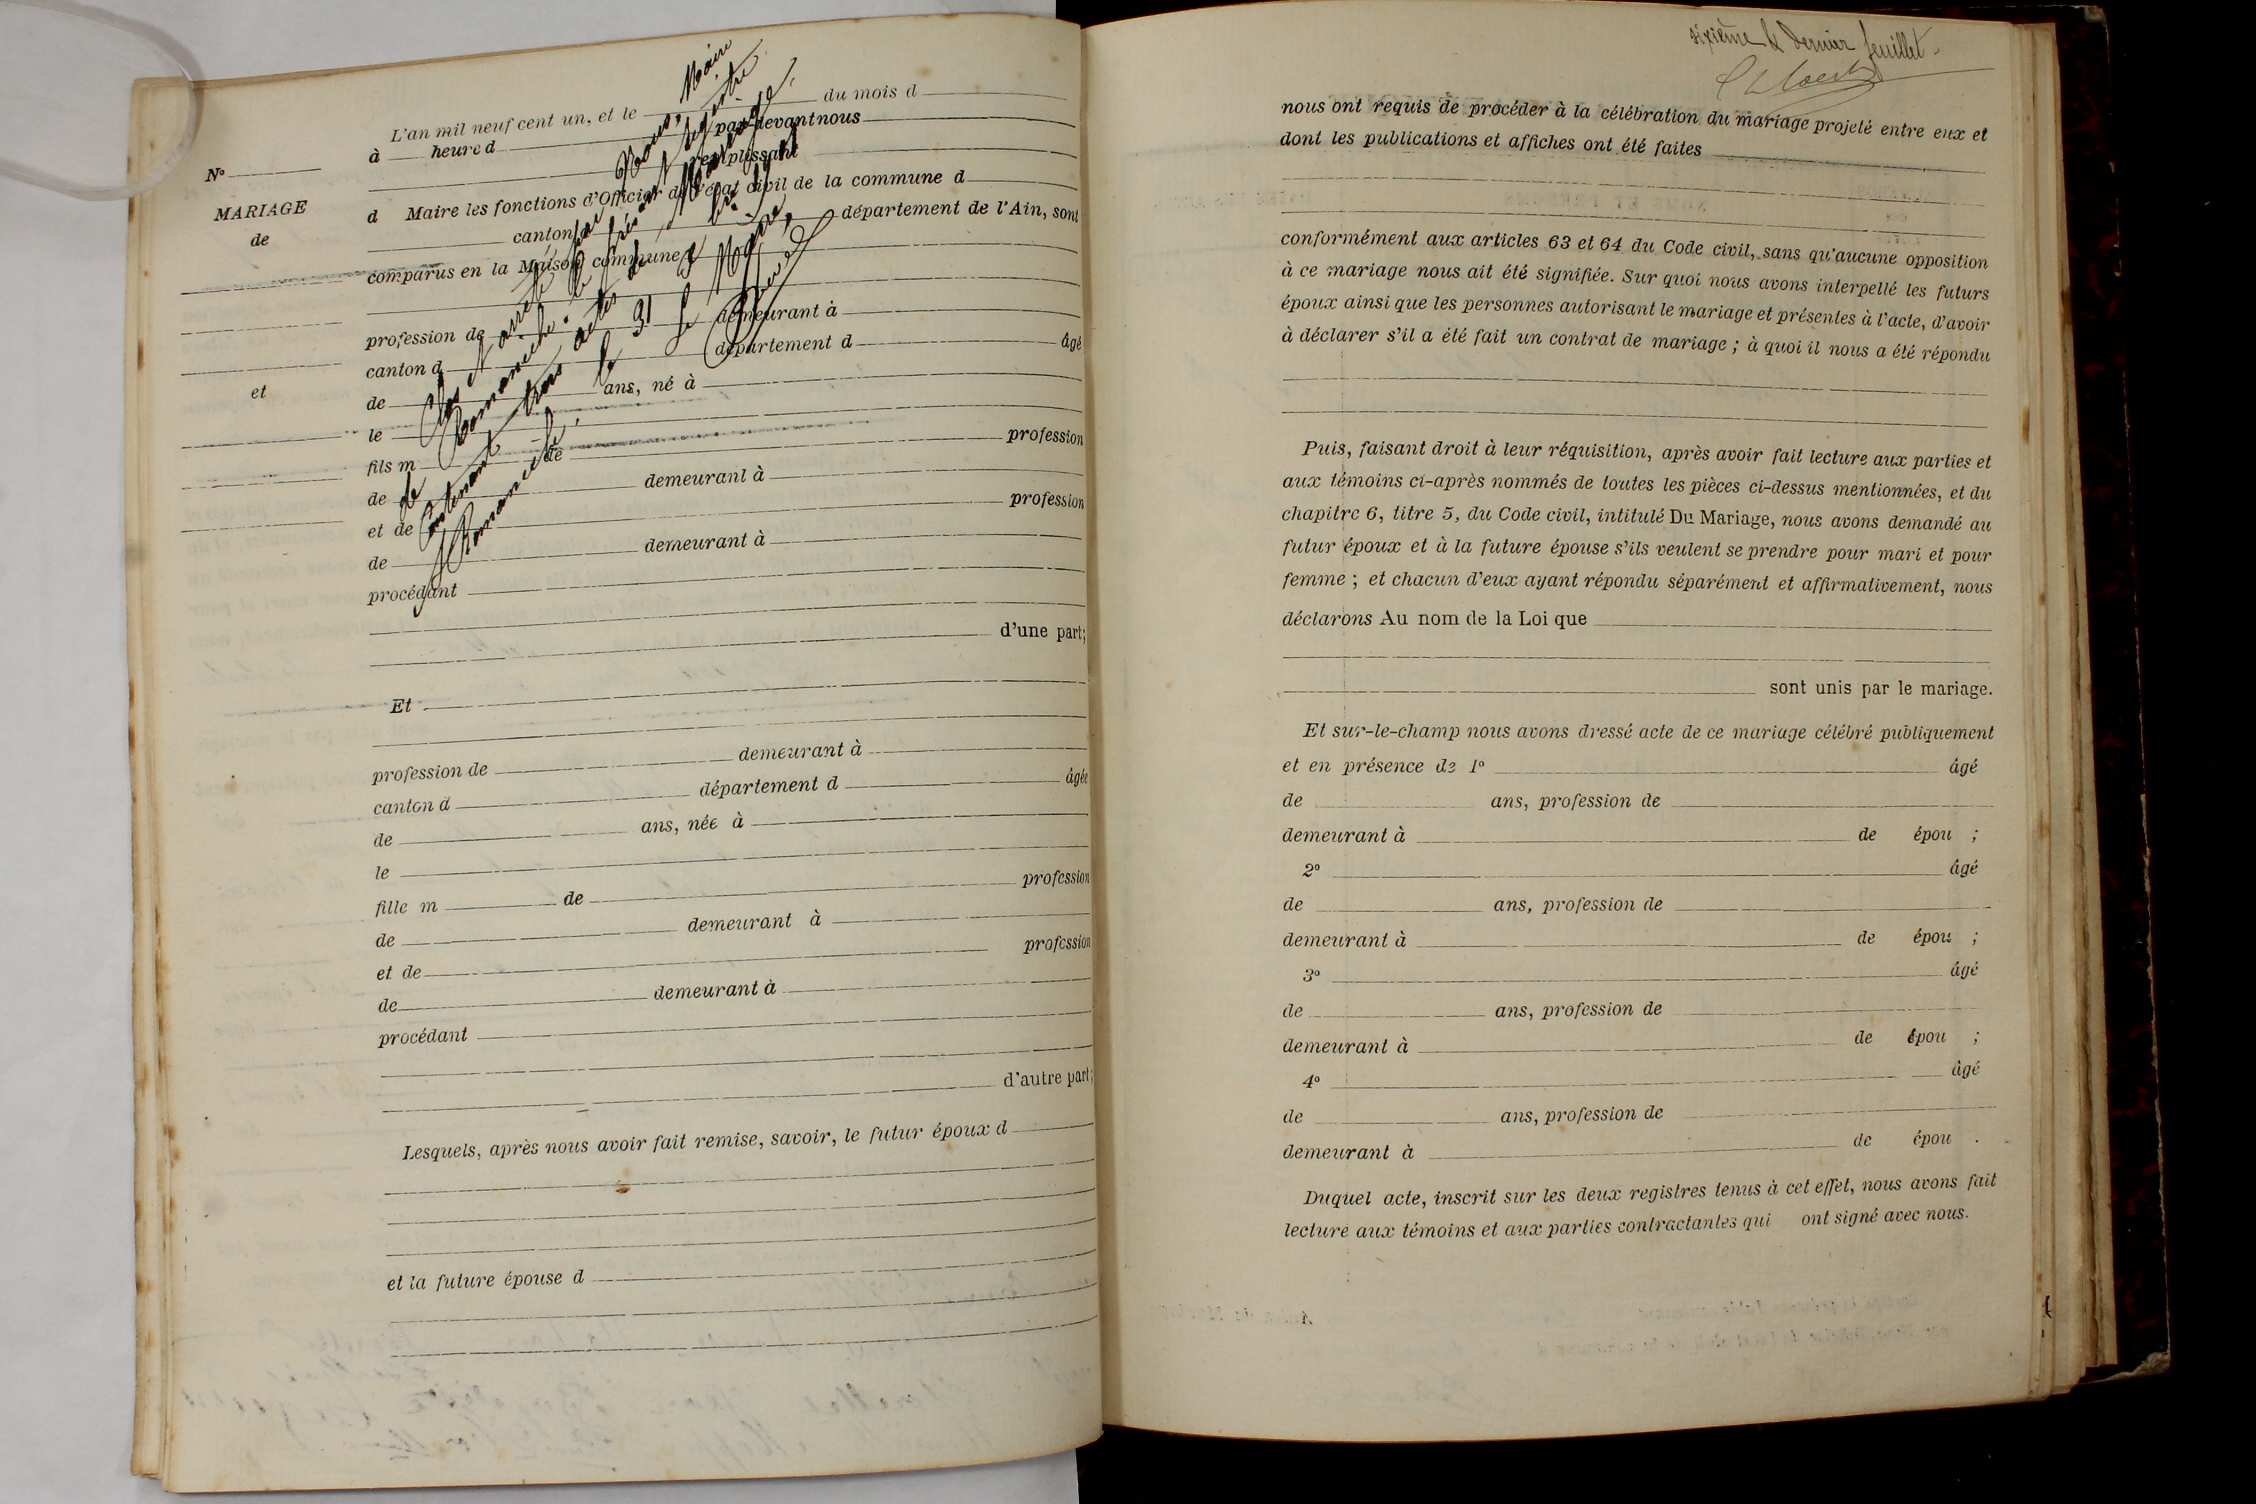 N°
MARIAGE
de
et
L'an mil neuf cent un, et le du mois d
à heure d par-devant nous
remplissant
d Maire les fonctions d'Officier de l'état civil de la commune d
canton département de l'Ain, sont
comparus en la Maison commune
profession de demeurant à
canton d département d âgé
de ans, né à
le
fils m de profession
de demeurant à
et de profession
de demeurant à
procédant
d'une part;
Et
profession de demeurant à
canton d département d âgée
de ans, née à
le
fille m de profession
de demeurant à
et de profession
de demeurant à
procédant
d'autre part;
Lesquels, après nous avoir fait remise, savoir, le futur époux d
et la future épouse d
Clos et arrêté par Nous, Maire
de Romanèche, le présent registre
contenant trois actes de Mariage,
à Romanèche, le 31
le Maire,
sixième & dernier feuillet.
nous ont requis de procéder à la célébration du mariage projeté entre eux et
dont les publications et affiches ont été faites
conformément aux articles 63 et 64 du Code civil, sans qu'aucune opposition
à ce mariage nous ait été signifiée. Sur quoi nous avons interpellé les futurs
époux ainsi que les personnes autorisant le mariage et présentes à l'acte, d'avoir
à déclarer s'il a été fait un contrat de mariage ; à quoi il nous a été répondu
Puis, faisant droit à leur réquisition, après avoir fait lecture aux parties et
aux témoins ci-après nommés de toutes les pièces ci-dessus mentionnées, et du
chapitre 6, titre 5, du Code civil, intitulé Du Mariage, nous avons demandé au
futur époux et à la future épouse s'ils veulent se prendre pour mari et pour
femme ; et chacun d'eux ayant répondu séparément et affirmativement, nous
déclarons Au nom de la Loi que
sont unis par le mariage.
Et sur-le-champ nous avons dressé acte de ce mariage célébré publiquement
et en présence de 1° âgé
de ans, profession de
demeurant à de épou ;
2° âgé
de ans, profession de
demeurant à de épou ;
3° âgé
de ans, profession de
demeurant à de épou ;
4° âgé
de ans, profession de
demeurant à de épou .
Duquel acte, inscrit sur les deux registres tenus à cet effet, nous avons fait
lecture aux témoins et aux parties contractantes qui ont signé avec nous.